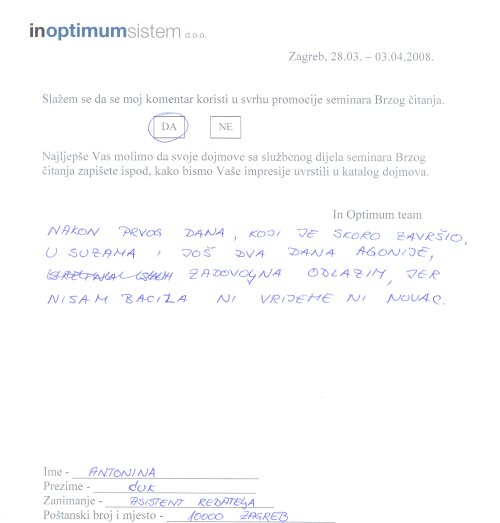 inoptimumsistem d.o.o.
Zagreb, 28.03. – 03.04.2008.
Slažem se da se moj komentar koristi u svrhu promocije seminara Brzog čitanja.
DA NE
Najljepše Vas molimo da svoje dojmove sa službenog dijela seminara Brzog
čitanja zapišete ispod, kako bismo Vaše impresije uvrstili u katalog dojmova.
In Optimum team
NAKON PRVOG DANA, KOJI JE SKORO ZAVRŠIO,
U SUZAMA I JOŠ DVA DANA AGONIJE,
ZADOVOLJNA ODLAZIM, JER
NISAM BACILA NI VRIJEME NI NOVAC.
Ime - ANTONINA
Prezime - ĐUK
Zanimanje - ASISTENT REDATELJA
Poštanski broj i mjesto - 10000 ZAGREB